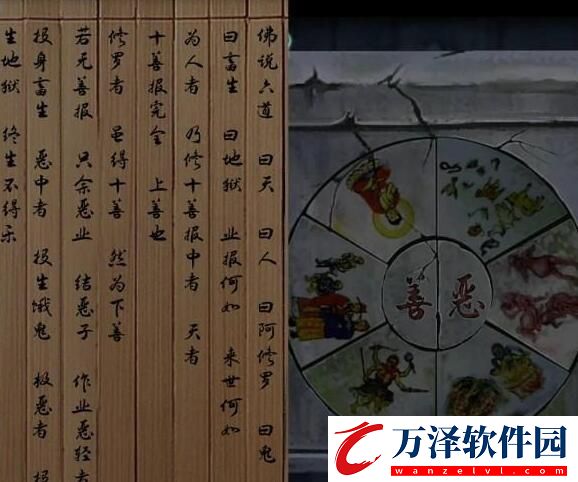 佛说六道 曰天 曰人 曰阿修罗 曰鬼
曰畜生 曰地狱 业报何如 来世何如
为人者 乃修十善报中者 天者
十善报完全 上善也
修罗者 虽得十善 然为下善
若无善报 只余恶业 结恶子 作业恶轻者
投身畜生 恶中者 投生饿鬼 极恶者 投
生地狱 终生不得乐
善 恶
万泽软件园
www.wanzelvl.com